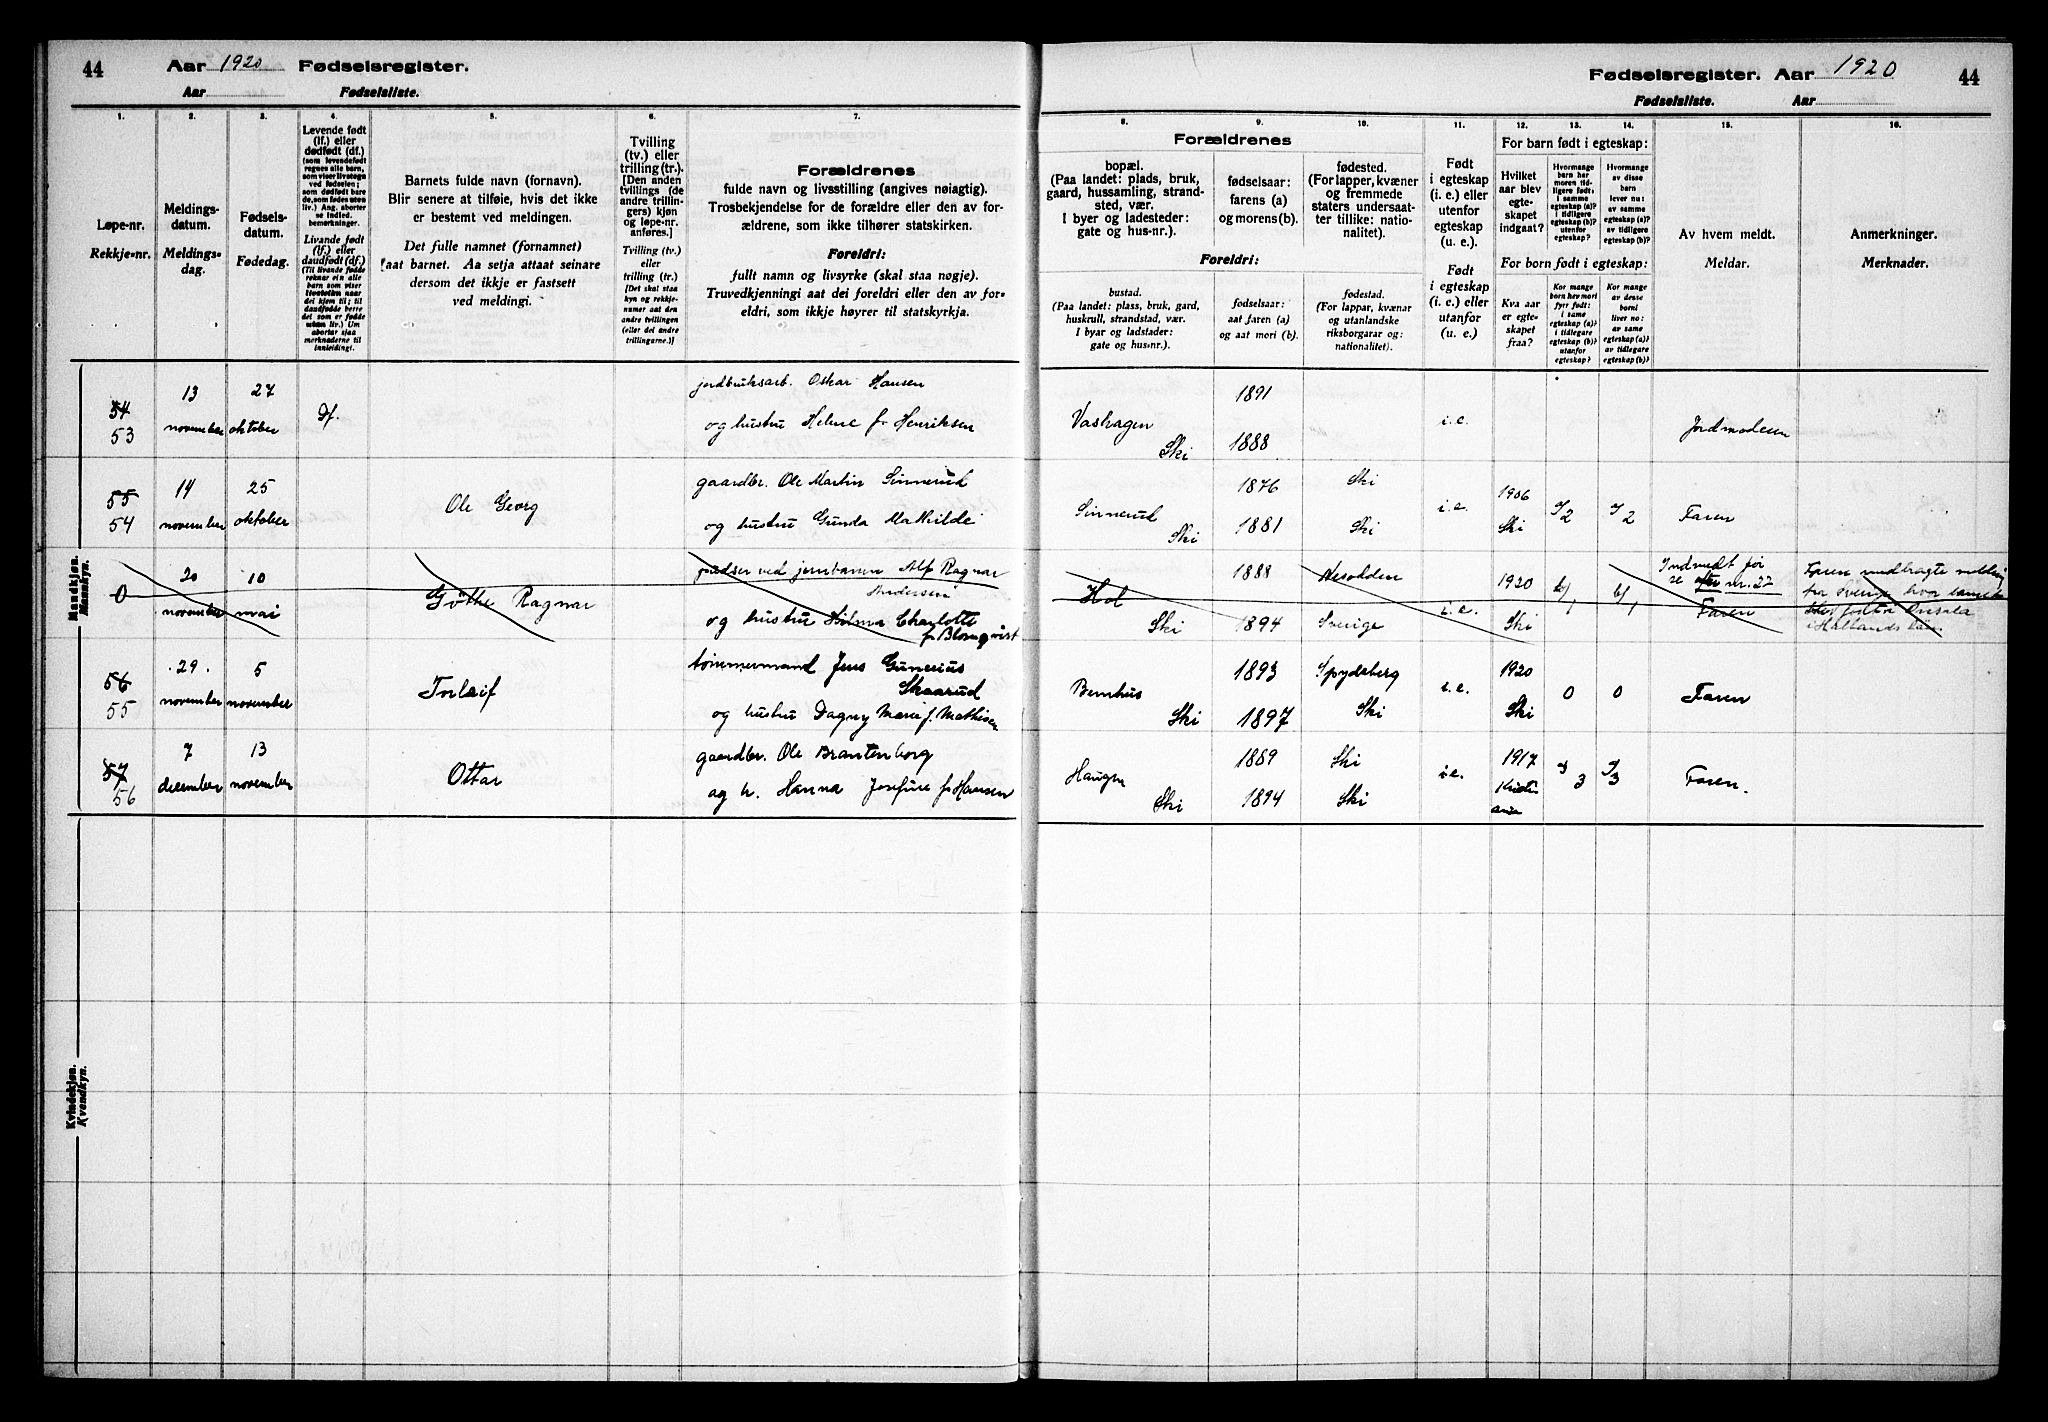 44
Aar 1920 Fødselsregister.
Aar Fødselsliste.
1.
Løpe-nr.
Rekkje-nr.
2.
Meldings-
datum.
Meldings-
dag.
3.
Fødsels-
datum.
Fødedag.
4.
Levende født
(lf.) eller
dødfødt (df.)
(som levendefødt
regnes alle barn,
som viser livstegn
ved fødselen;
som dødfødt bare
de, som fødes uten
liv.) Ang. aborter
se indled.
bemerkninger.
Livande født
(lf.) eller
daudfødt (df.)
5.
Barnets fulde navn (fornavn).
Blir senere at tilføie, hvis det ikke
er bestemt ved meldingen.
Det fulle namnet (fornamnet)
aat barnet. Aa setja attaat seinare
dersom det ikkje er fastsett
ved meldingi.
6.
Tvilling
(tv.) eller
trilling (tr.).
[Den anden
tvillings (de
andre trillin-
gers) kjøn
og løpe-nr.
anføres.]
Tvilling (tv.)
eller
trilling (tr.)
[Det skal staa
kyn og rekkje-
numer aat den
andre tvillingen
(eller dei andre
trillingarne.)]
7.
Forældrenes
fulde navn og livsstilling (angives nøiagtig).
Trosbekjendelse for de forældre eller den av for-
ældrene, som ikke tilhører statskirken.
Foreldri:
fullt namn og livsyrke (skal staa nøgje).
Truvedkjenningi aat dei foreldri eller den av for-
eldri, som ikkje høyrer til statskyrkja.
Mandkjøn.
Mannskyn.
54
53
13
november
27
oktober
Df.
jordbruksarb. Oskar Hansen
og hustru Helene f. Henriksen
55
54
14
november
25
oktober
Ole Georg
gaardbr. Ole Martin Sinnerud
og hustru Gunda Mathilde
0
20
november
10
mai
Göthe Ragnar
pudser ved jernbanen Alf Ragnar
Andersen
og hustru Hilma Charlotte
f. Blomqvist
56
55
29.
november
5
november
Torleif
tømmermand Jens Gunerius
Skaarud
og hustru Dagny Marie f. Mathisen
57
56
7
december
13
november
Ottar
gaardbr. Ole Brantenborg
og h. Hanna Josefine f. Hansen
Kvindekjøn.
Kvendkyn.
Fødselsregister. Aar 1920
44
Fødselsliste. Aar
8.
9.
10.
Forældrenes
bopæl.
(Paa landet: plads, bruk,
gaard, hussamling, strand-
sted, vær.
I byer og ladesteder:
gate og hus-nr.).
fødselsaar:
farens (a)
og morens (b).
fødested.
(For lapper, kvæner
og fremmede
staters undersaat-
ter tillike: natio-
nalitet).
Foreldri:
bustad.
(Paa landet: plass, bruk, gard,
huskrull, strandstad, vær.
I byar og ladstader:
gate og hus-nr.).
fødselsaar:
aat faren (a)
og aat mori (b).
fødestad.
(For lappar, kvænar
og utanlandske
riksborgarar og:
nationalitet).
11.
Født
i egteskap
(i. e.) eller
utenfor
egteskap
(u. e.).
Født
i egteskap
(i. e.) eller
utanfor
(u. e.)
12.
13.
14.
For barn født i egteskap:
Hvilket
aar blev
egte-
skapet
indgaat?
Hvormange
barn har
moren tid-
ligere født:
i samme
egteskap (a)?
i tidligere
egteskap (b)?
utenfor
egteskap?
Hvormange
av disse
barn
lever nu:
av samme
egteskap (a)?
av tidligere
egteskap (b)?
For born født i egteskap:
Kva aar
er egte-
skapet
fraa?
Kor mange
born hev mori
fyrr født:
i same
egteskap (a)?
i tidlegare
egteskap (b)?
utanfor
egteskap?
Kor mange
av desse
borni
liver no:
av same
egteskap (a)?
av tidlegare
egteskap (b)?
15.
Av hvem meldt.
Meldar.
16.
Anmerkninger.
Merknader.
Vashagen
Ski
1891
1888
i.e.
Jordmoderen
Sinnerud
Ski
1876
1881
Ski
Ski
i.e.
1906
Ski
a/2
a/2
Faren
Hol
Ski
1888
1894
Nesodden
Sverige
i.e.
1920
Ski
b/1
b/1
Indmeldt før
se nr. 27
Faren
Faren melding
fra Sverige hvor barnet
født i Onsala
i Hallands län.
Bernhus
Ski
1893
1897
Spydeberg
Ski
i.e.
1920
Ski
0
0
Faren
Haugen
Ski
1889
1894
Ski
Ski
i.e.
1917
Kristi
ania
a/3
a/3
Faren.